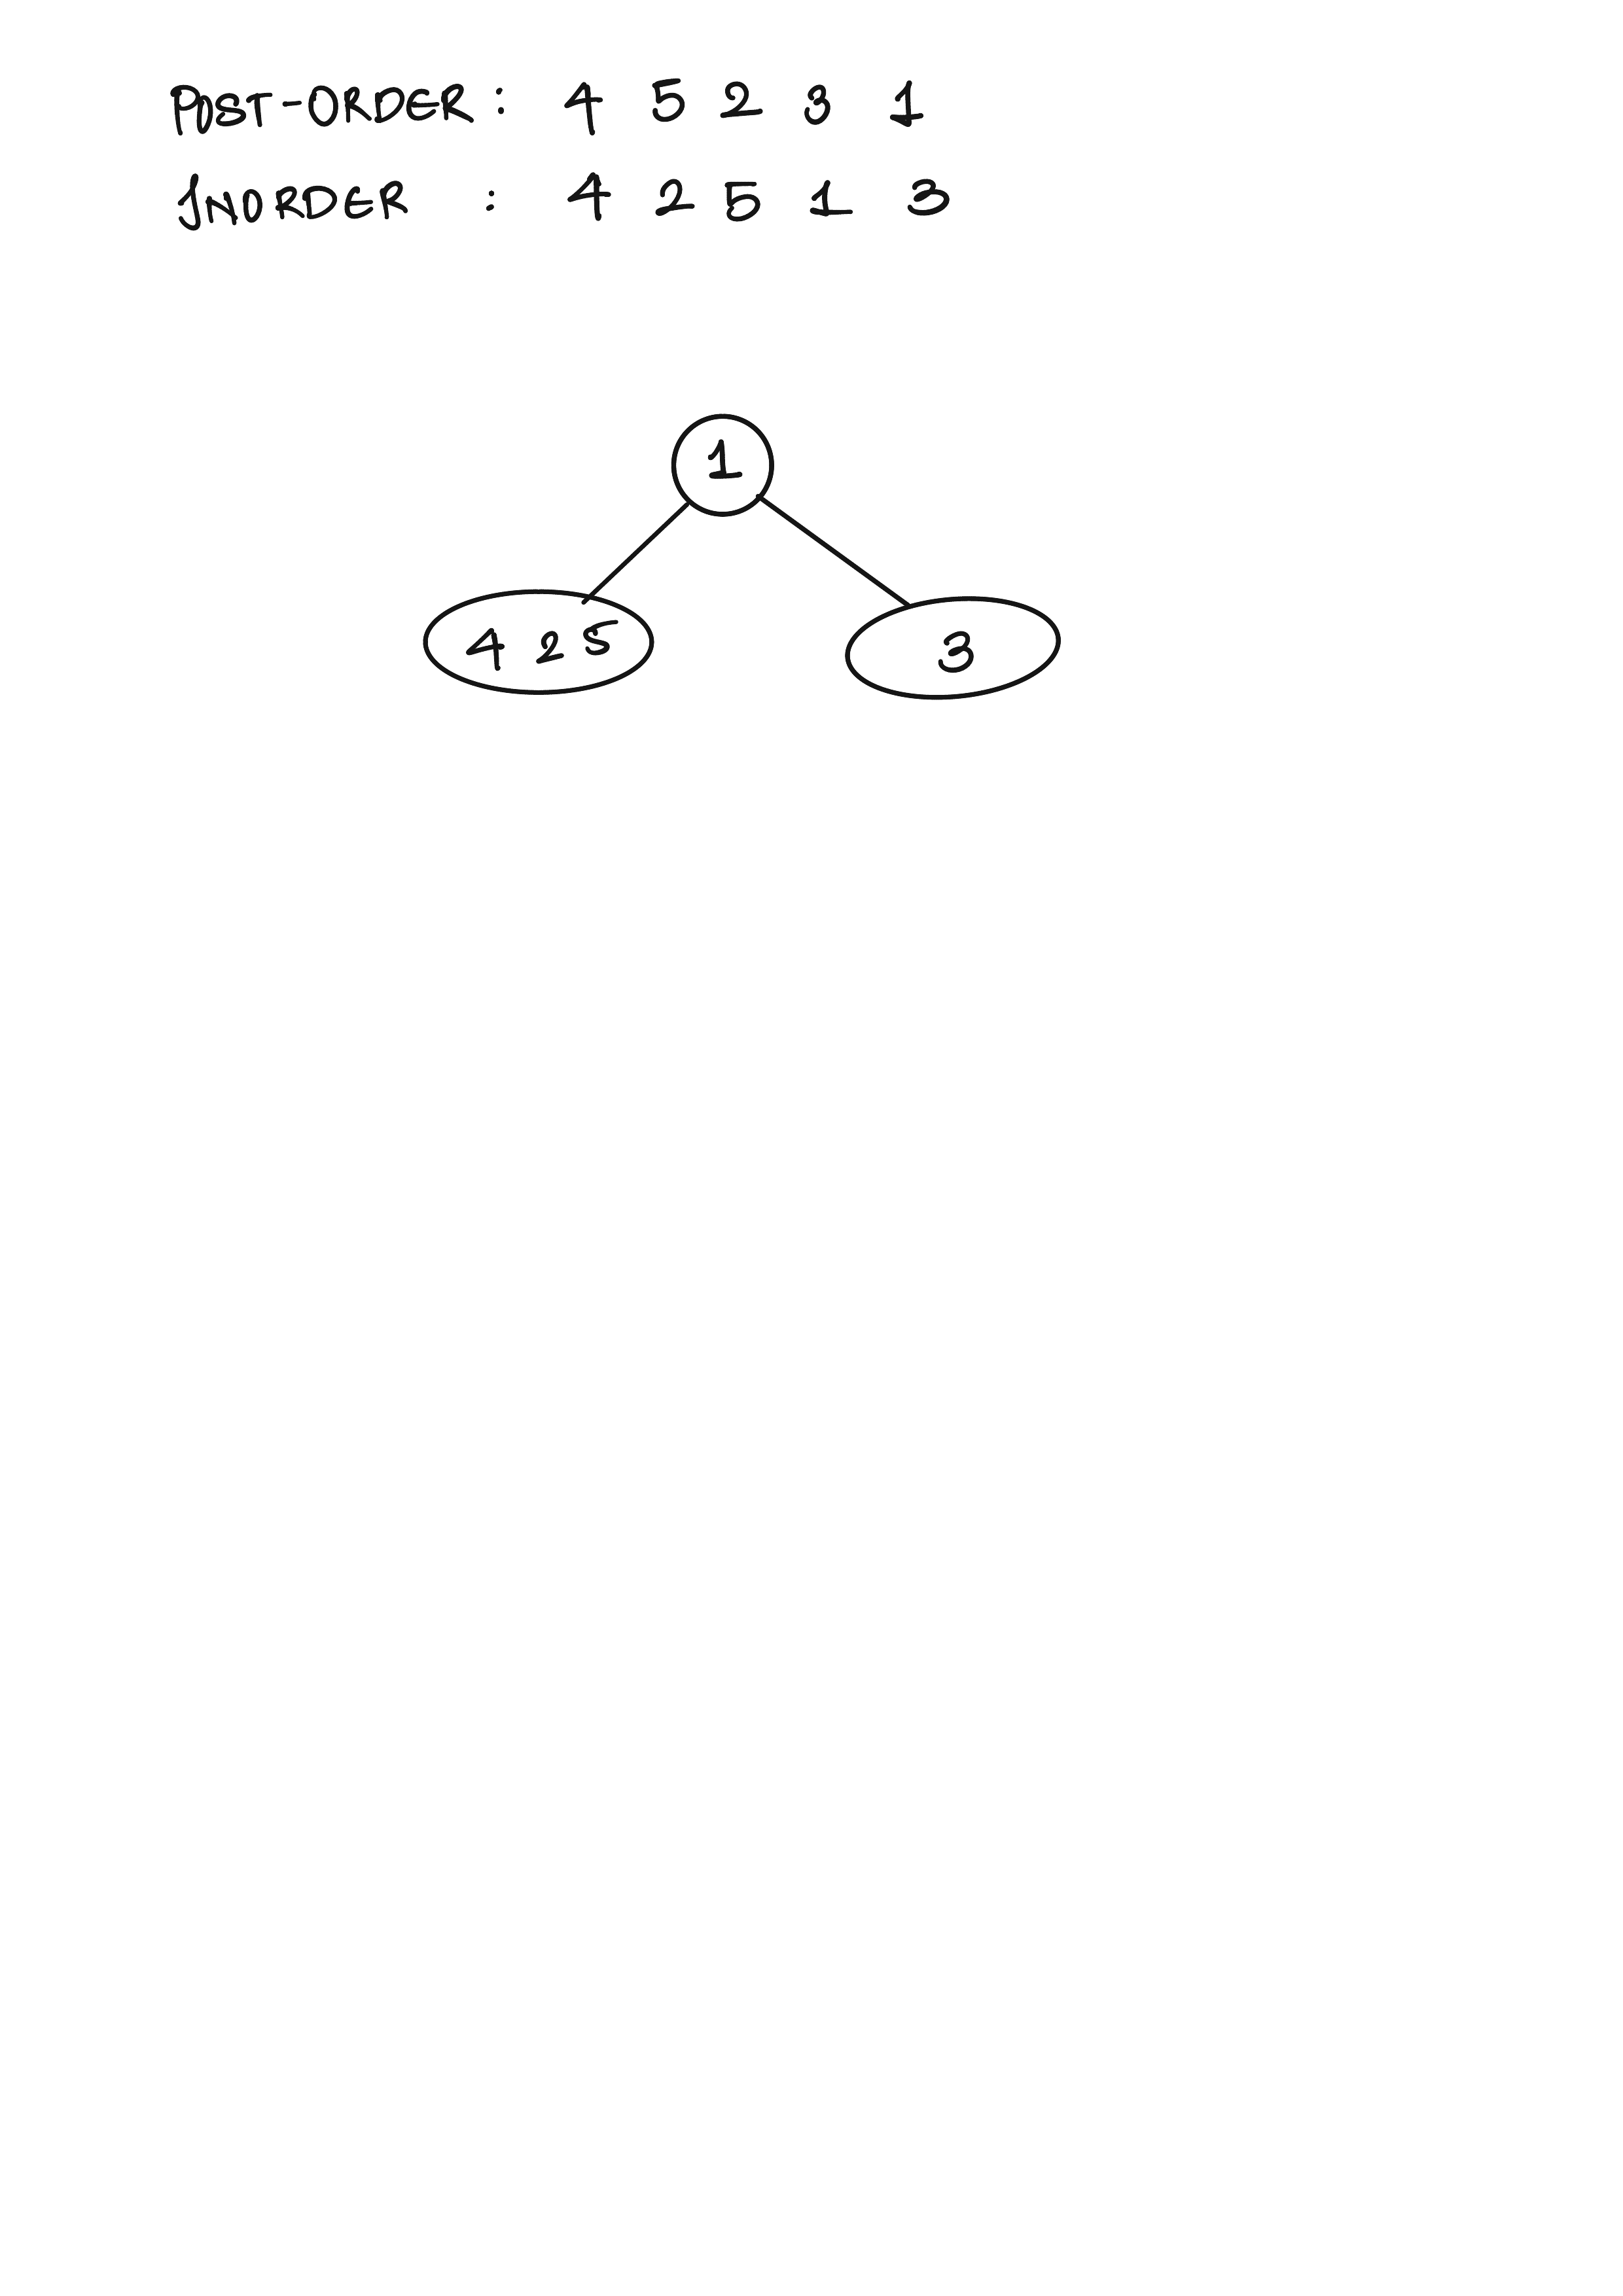 POST-ORDER: 4 5 2 3 1
INORDER : 4 2 5 1 3
1
4 2 5
3